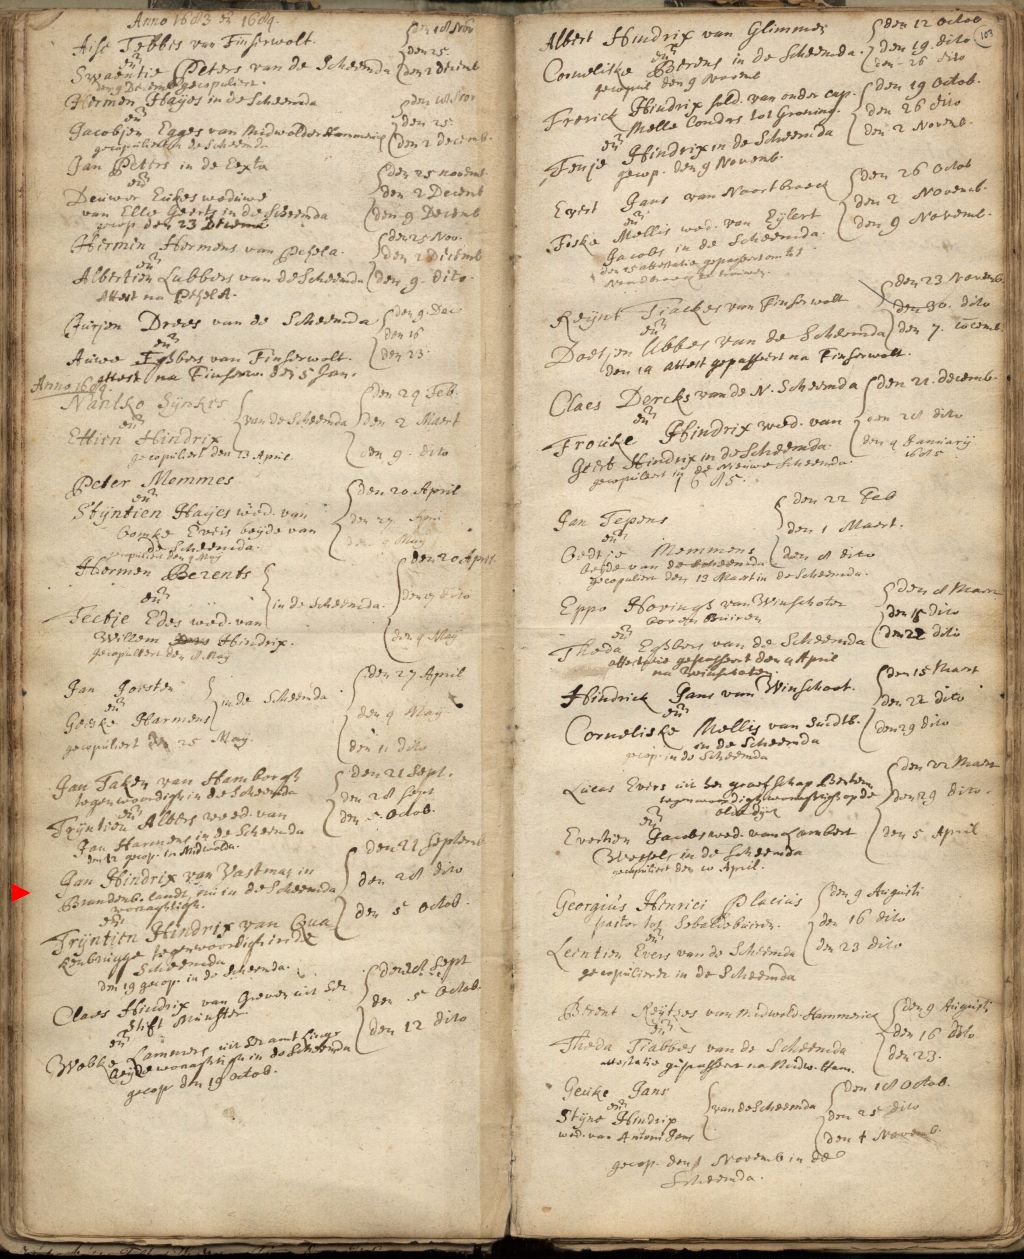 Anno 1683 en 1684.
Aisc Tebbis van Finserwolt.
den 18 Nov
den 25.
en
Swaentie Peters van de Scheemda
den 2 decemb
den 9 decemb gecopuliert
Hermen Hayes in de Scheemda
den 18 Nov
den 25.
en
Jacobjen Egges van Midwolder Hammerick
den 2 decemb.
gecopuliert in de Scheemda
Jan Peters in de Eexta
den 25 novemb
en
den 2 Decemb
Deuwer Eukes weduwe
van Elle Geerts in de Scheemda
den 9 Decemb
gecop den 23 Decemb
Hermen Hermens van
den 25 Nov.
en
den 2 decemb
Albertien Lubbers van de Scheemda
den 9. dito.
Attest na
Jurjen Drees van de Scheemda
den 9. Dec
en
den 16
Auwe Egbers van Finserwolt.
den 23.
attest na Finserw. den 5 Jan.
Anno 1684.
Nantko Synkes
en
Ettien Hindrix
van de Scheemda
den 24 Feb.
den 2 Maert
den 9. dito
gecopuliert den 13 April
Peter Memmes
en
den 20 April
Styntien Hayes wed. van
den 27 April
Evers beyde van
de Scheemda.
den 4 May
Hermen Berents
en
in de Scheemda.
den 20 April.
den 27 dito
Tectje Edes wed. van
Willem Hindrix.
den 4 May
gecopuliert den 8 May
Jan Josten
en
in de Scheemda
den 27 April
Geeske Harmens
den 4 May
gecopuliert den 25 May.
den 11 dito
Jan Taken van Hamborgh
tegenwoordigh in de Scheemda
den 21 Sept.
en
den 28 Sept
Tryntien Albers weed. van
Jan Harmens in de Scheemda
den 5 Octob.
den 12 gecop. in Midwolda.
Jan Hindrix van Vastmar in
Brandenb. landt, nu in de Scheemda
woonachtigh.
den 21 Septemb
den 28 dito
en
den 5 Octob.
Tryntien Hindrix van Qua
kenbrugge tegenwoordigh in de
Scheemda
den 19 gecop. in de Scheemda.
Claes Hindrix van Greven uit het
Stift Munster
den 28 Sept
den 5 Octob.
en
Wobke Lammers uit het amt Linge
beyde woonachtigh in de Scheemda
den 12 dito
gecop den 19 Octob.
103
Albert Hindrix van Glimmer
den 12 Octob
en
den 19. dito
Corneliske Berens in de Scheemda.
den 26 dito
gecopul den 9 Novemb
Frerick Hindrix sold. van onder cap.
Melle Conders tot Groning.
den 19 Octob.
en
den 26 dito
Fenje Hindrix in de Scheemda
den 2 Novemb.
gecop. den 9 Novemb.
Evert Jans van Noortbroeck
den 26 Octob
en
den 2 Novemb.
Fiske Mellis wed. van Eylert
Jacobs in de Scheemda.
den 9 Novemb.
attestatie gepasseert om tot
Noordbroeck te trouwen.
Reynt Tiackes van Finserwolt
den 23 Novemb
en
den 30. dito
Doetjen Ubbes van de Scheemda
den 7. Decemb
den 14 attest gepasseert na Finserwolt.
Claes Dercks van de N. Scheemda
den 21. decemb.
en
den 28 dito
Frouke Hindrix wed. van
Geert Hindrix in de Scheemda.
den 4 Januarij
1685
gecopuliert in de Nieuwe Scheemda.
1685.
Jan Tepens
den 22 Feb
en
den 1 Maert.
Memmens
den 8 dito
beyde van de Scheemda
gecopuliert den 13 Maert in de Scheemda.
Eppo Hovings van Winschoter
den 8 Maert
en
den 15 dito
Theda Egbers van de Scheemda
den 22 dito
attestatie gepasseert den 4 April
na Winschoten.
Hindrick Jans van Winschoot.
den 15 Maert
en
den 22 dito
Corneliske Mellis van Suidtb.
in de Scheemda
den 29 dito
gecop. in de Scheemda
Lucas Evers uit het graefschap Bentem
tegenwoordigh woonachtigh op de
den 22 Maert
en
den 29 dito.
Evertien Jacobs wed. van Lambert
Wessels in de Scheemda
den 5 April
gecopuliert den 10 April.
Georgius Henrici Placius
pastor tot Sebaldebuiren
den 9 Augusti
en
den 16 dito
Leentien Evers van de Scheemda
den 23 dito
gecopulieret in de Scheemda
Berent Reytses van Midwold-Hammerick
den 9 Augusti
en
den 16 dito
Theda Tiabbes van de Scheemda
den 23.
attestatie gepasseert na Midwoldam.
Geuke Jans
en
Styne Hindrix
van de Scheemda
den 18 Octob.
den 25 dito
wed. van Antoni Jans
den 1 Novemb.
gecop. den 8 Novemb in de
Scheemda.